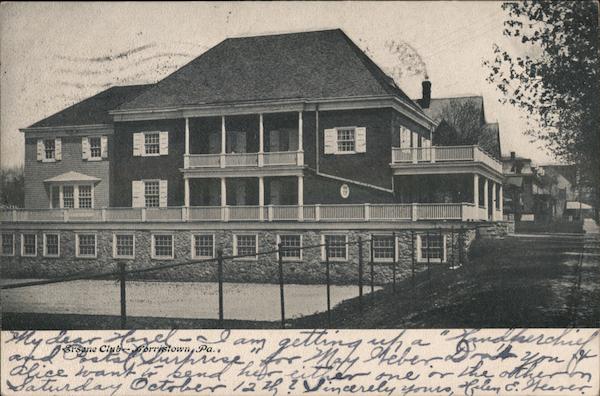 Ersene Club - Norristown, Pa.
My dear Hazel - I am getting up a "Handkerchief
and Postal Surprise" for May Weber - Don't you &
Alice want to send her either one or the other on
Saturday October 12th? Sincerely yours, Helen E. Weaver.